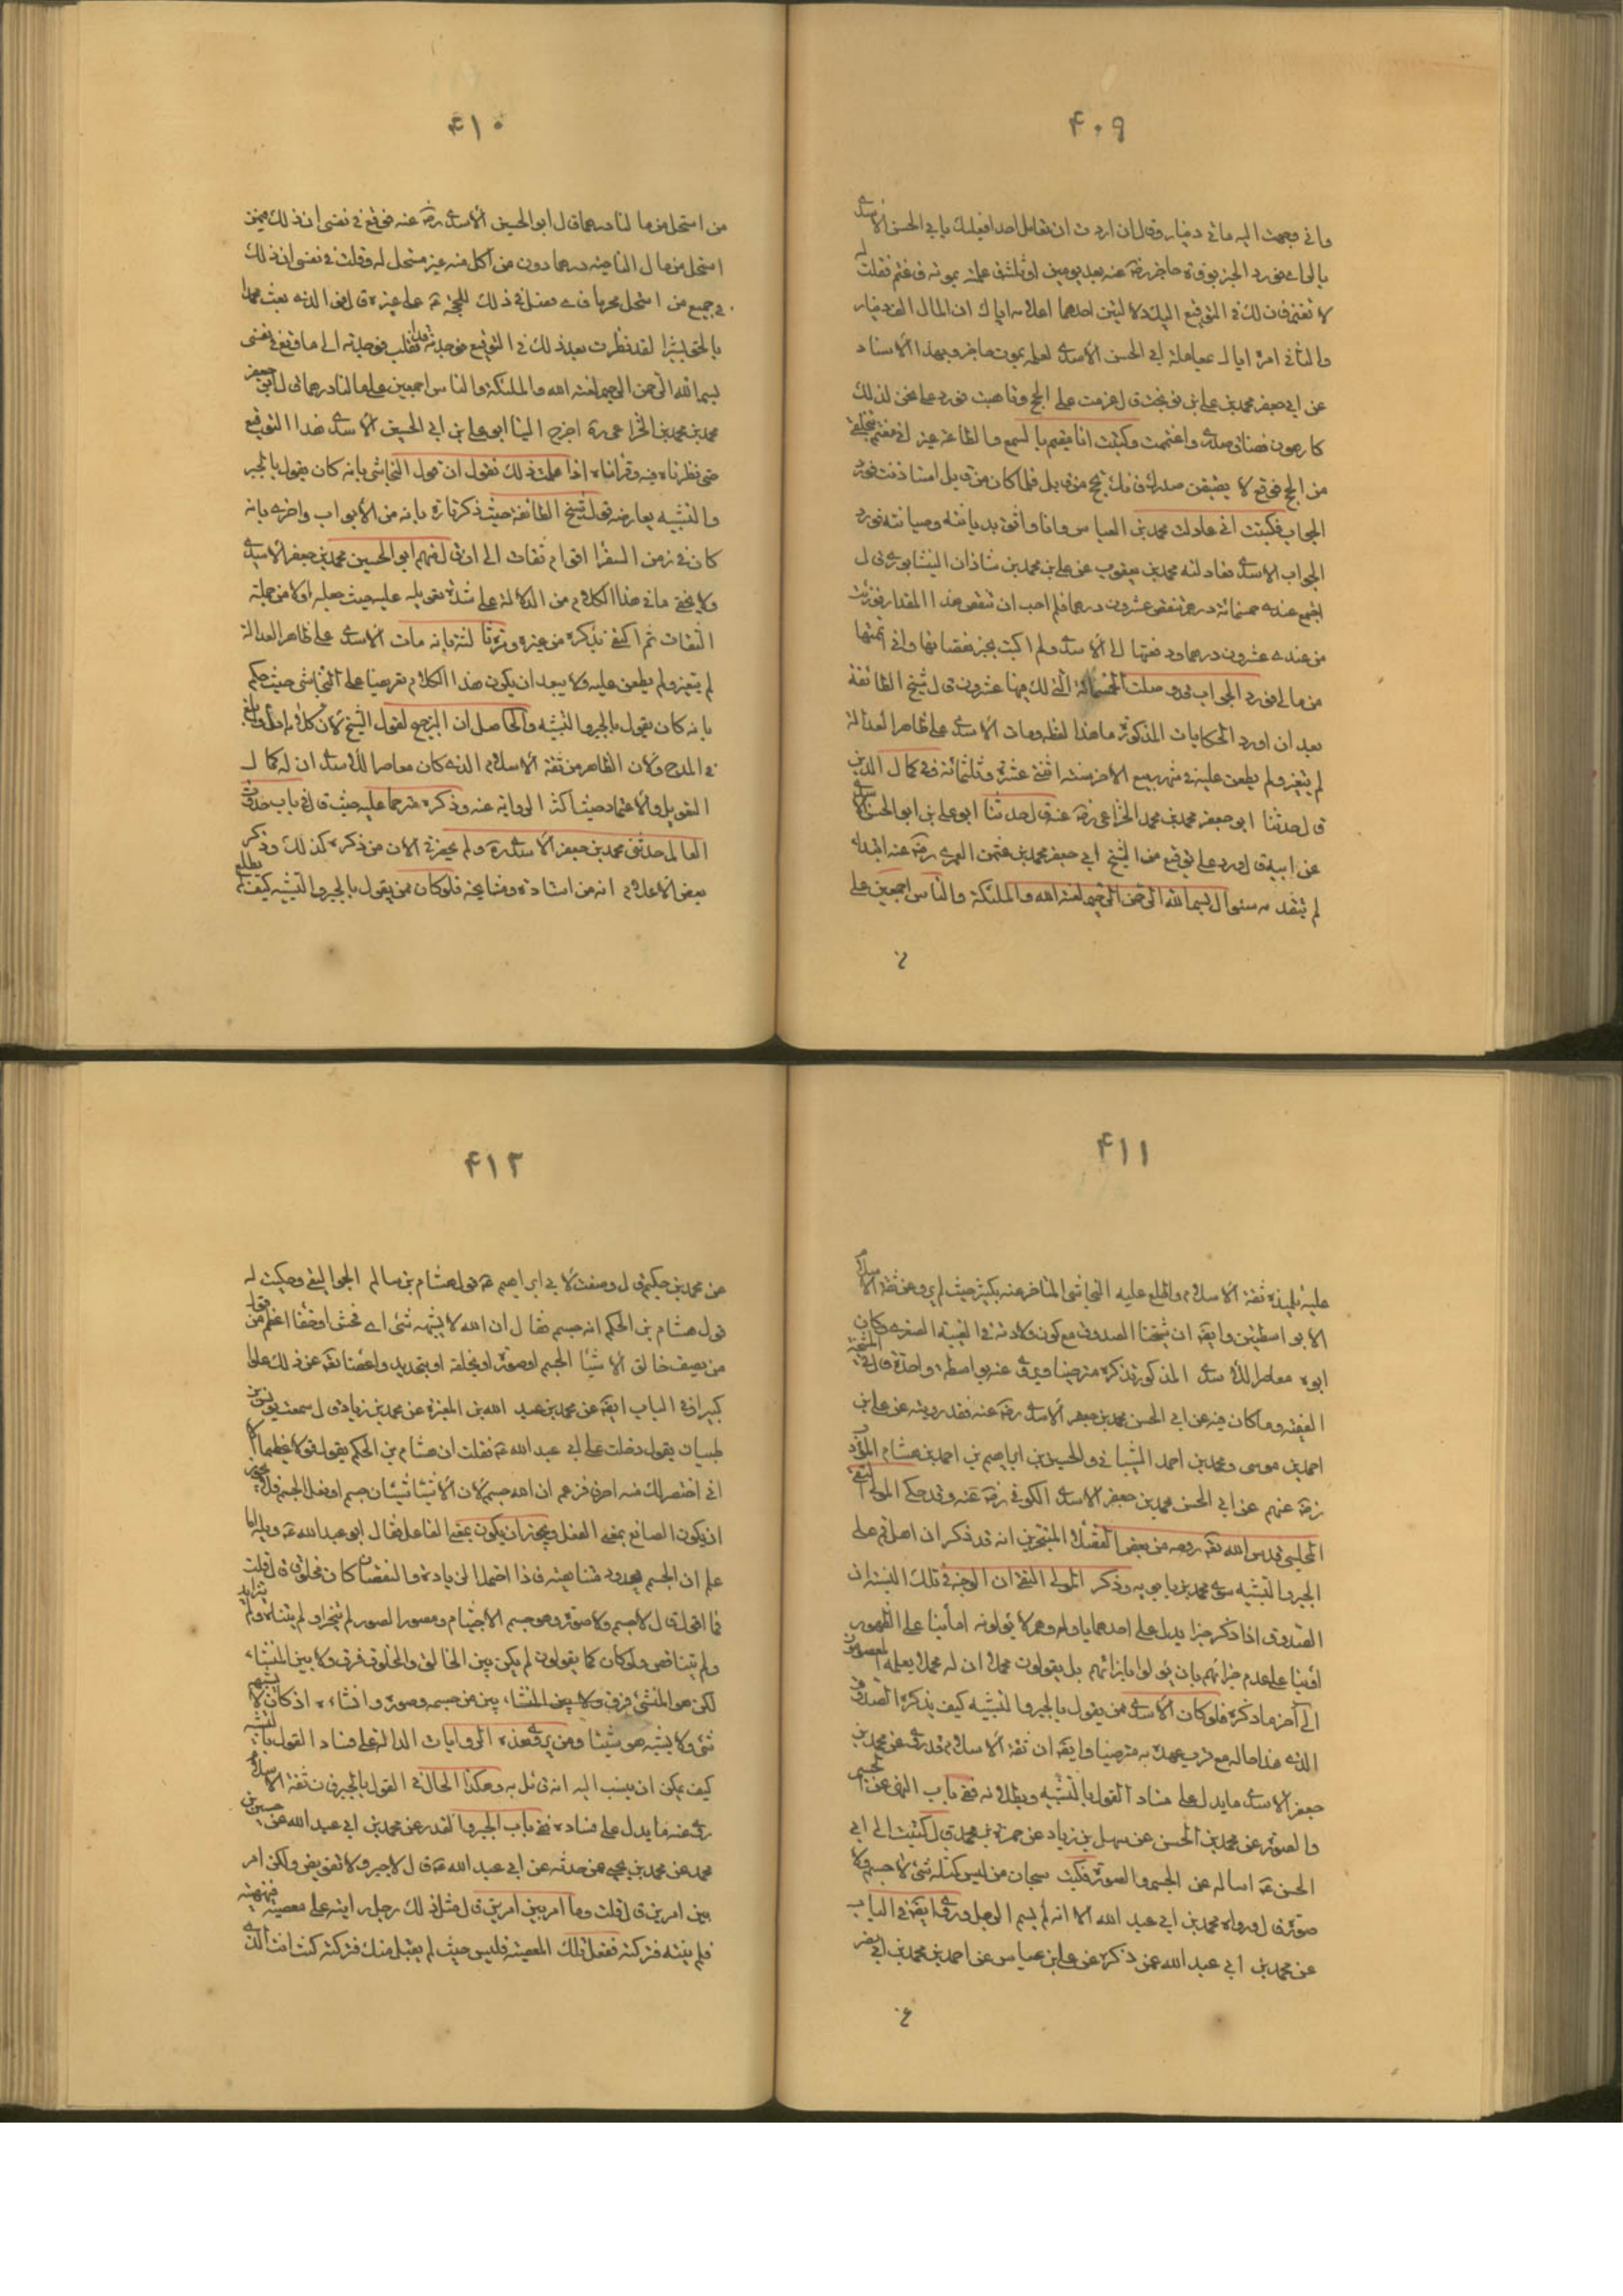 ۴۰۹
واني وجهت اليه مائتي دينار وقال ان اردت ان تعامل احدا فعليك بابي الحسن الأسدي
بالري فورد الخبر بوفاة حاجز رضي الله عنه بعد يومين او ثلثة فاعلمته بموته فاغتم فقلت له
لا تغتم فان لك في التوقيع اليك دلالتين احدهما اعلامه اياك ان المال الف دينار
والثاني امره اياك بمعاملة ابي الحسن الأسدي لعلمه بموت حاجز وبهذا الاسناد
عن ابي جعفر محمد بن علي بن نوبخت قال عزمت على الحج وتاهبت فورد علي نحن لذلك
كارهون فضاق صدري واغتممت وكتبت انا مقيم بالسمع والطاعة غير اني مغتم بتخلفي
من الحج فوقع لا يضيقن صدرك فانك تحج من قابل فلما كان من قابل استاذنت فورد
الجواب فكتبت اني عادلت محمد بن العباس وانا واثق بديانته وصيانته فورد
الجواب الاسدي فعادلته محمد بن يعقوب عن علي بن محمد بن شاذان النيشابوري قال
اجتمع عندي خمسمائة درهم تنقص عشرون درهما فلم احب ان تنقص هذا المقدار فوزنت
من عندي عشرون درهما ودفعتها الى الأسدي ولم اكتب بخبر نقصانها واني اتممتها
من مالي فورد الجواب قد وصلت الخمسمائة التي لك فيها عشرون قال شيخ الطائفة
بعد ان اورد الحكايات المذكورة ما هذا لفظه ومات الأسدي على ظاهر العدالة
لم يتغير ولم يطعن عليه في شهر ربيع الاخر سنة اثنتي عشرة وثلثمائة وفي كمال الدين
قال حدثنا ابو جعفر محمد بن محمد الخزاعي رضي الله عنه قال حدثنا ابو علي بن ابو الحسن الأسدي
عن ابيه قال ورد علي توقيع من الشيخ ابي جعفر محمد بن عثمن العمري رضي الله عنه ابتداء
لم يتقدمه سئوال بسم الله الرحمن الرحيم لعنة الله والملئكة والناس اجمعين على
۴۱۰
من استحل من مالنا درهما قال ابو الحسين الأسدي رضي الله عنه فوقع في نفسي ان ذلك فيمن
استحل من مال الناحية درهما دون من اكل منه غير مستحل له وقلت في نفسي ان ذلك
في جميع من استحل محرما فاي فضل في ذلك للحجة ع على غيره قال فو الذي بعث محمدا
بالحق بشيرا لقد نظرت بعد ذلك في التوقيع فوجدته قد انقلب فوجدته الى ما وقع في نفسي
بسم الله الرحمن الرحيم لعنة الله والملئكة والناس اجمعين على من اكل من مالنا درهما قال ابو جعفر
محمد بن محمد بن الخزاعي ره اخرج الينا ابو علي بن ابي الحسين الأسدي هذا التوقيع
حتى نظرناه فيه وقراناه اذا علمت ذلك نقول ان قول النجاشي بانه كان يقول بالجبر
والتشبيه يعارضه قول شيخ الطائفة حيث ذكر تارة بانه من الأبواب واخرى بانه
كان في زمن السفرا اقوام ثقات الى ان قال فمنهم ابو الحسين محمد بن جعفر الأسدي
ولا يخفى ما في هذا الكلام من الدلالة على شدة تعويله عليه حيث جعله اولا من جملة
الثقات ثم اكتفى بذكره من غيره وترقى لنته بانه مات الأسدي على ظاهر العدالة
لم يتغير ولم يطعن عليه ولا يبعد ان يكون هذا الكلام تعريضا على النجاشي حيث حكم
بانه كان يقول بالجبر والتشبيه والحاصل ان الترجيح لقول الشيخ لان كلامه ادل وابلغ
في المدح ولان الظاهر من ثقة الأسلام الذي كان معاصرا للأسدي ان له كمال
التعويل والاعتماد حيث اكثر الرواية عنه وذكره مترحما عليه حيث قال في باب حدوث
العالم حدثني محمد بن جعفر الأسدي ره ولم يحضرني الان من ذكره كذلك وذكر
بعض الاعلام انه من استاده ومشايخه فلو كان ممن يقول بالجبر والتشبيه كيف لم يطلع
۴۱۱
عليه تلميذه ثقة الأسلام واطلع عليه النجاشي المتاخر عنه بكثير حيث لم يرو عن ثقة الأسلام
الا بواسطتين وايضا ان شيخنا الصدوق مع كون ولادته في الغيبة الصغرى كان
ابوه معاصرا للأسدي المذكور ذكره مترضيا وروى عنه بواسطة واحدة قال في المشيخة
الفقيه وما كان فيه عن ابي الحسن محمد بن جعفر الأسدي رضي الله عنه فقد رويته عن علي بن
احمد بن موسى ومحمد بن احمد الشيباني والحسين بن ابراهيم بن احمد بن هشام المؤدب
رضي الله عنهم عن ابي الحسن محمد بن جعفر الأسدي الكوفي رضي الله عنه وقد حكى المولى التقي
المجلسي قدس الله تعالى روحه من بعض الفضلاء المتبحرين انه قد ذكر ان اهل قم على
الجبر والتشبيه سوى محمد بن بابويه وذكر المولى التقي ان الوجه في تلك النسبة ان
الصدوق اذا ذكر خبرا يدل على احدهما ياوله وهم لا يئولونه اما بنا على الظهور
او بنا على عدم جزائهم بان يئولوا بارائهم بل يقولون مجملا ان له محملا يعلمه المعصومون
الى آخر ما ذكره فلو كان الأسدي ممن يقول بالجبر والتشبيه كيف يذكره الصدوق
الذي هذا حاله مع قرب عهده به مترضيا وايضا ان ثقة الأسلام قد روى عن محمد بن
جعفر الأسدي ما يدل على فساد القول بالتشبيه وبطلانه ففي باب النهي عن الجسم
والصورة عن محمد بن الحسن عن سهل بن زياد عن حمزة بن محمد قال كتبت الى ابي
الحسن ع اساله عن الجسم والصورة فكتب سبحان من ليس كمثله شئ لا جسم ولا
صورة قال ورواه محمد بن ابي عبد الله الا انه لم يسم الرجل وروى ايضا في الباب
عن محمد بن ابي عبد الله عمن ذكره عن علي بن عباس عن احمد بن محمد بن ابي نصر
۴۱۲
عن محمد بن حكيم قال وصفت لأبي ابراهيم ع قول هشام بن سالم الجواليقي وحكيت له
قول هشام بن الحكم انه جسم فقال ان الله لا يشبهه شئ اي فحش او خنا اعظم من قول
من يصف خالق الأشيا بجسم او صورة او بخلقه او بتحديد واعضا تعالى عن ذلك علوا
كبيرا وفي الباب ايضا عن محمد بن عبد الله بن المغيرة عن محمد بن زياد قال سمعت يونس بن
ظبيان يقول دخلت على ابي عبد الله ع فقلت ان هشام بن الحكم يقول قولا عظيما الا
اني اختصر لك منه احرفا فزعم ان الله جسم لان الأشيا شيئان جسم او فعل الجسم فلا يجوز
ان يكون الصانع بمعنى الفعل ويجوز ان يكون بمعنى الفاعل فقال ابو عبد الله ع ويله اما
علم ان الجسم محدود متناهي فاذا احتمل الزيادة والنقصان كان مخلوقا قال قلت
فما اقول قال لا جسم ولا صورة وهو جسم الاجسام ومصور الصور لم يتجزا ولم يتناه ولم يتزايد
ولم يتناقص ولو كان كما يقولون لم يكن بين الخالق والمخلوق فرق ولا بين المنشاء
لكن هو المنشئ فرق ولا بين المنشاء بين من جسمه وصوره وانشاءه اذ كان لا يشبهه
شئ ولا يشبه هو شيئا ومن روى هذه الروايات الدالة على فساد القول بالتشبيه
كيف يمكن ان ينسب اليه انه قائل به وهكذا الحال في القول بالجبر فان ثقة الأسلام
روى عنه ما يدل على فساده ففي باب الجبر والقدر عن محمد بن ابي عبد الله عن حسين بن
محمد عن محمد بن يحيى عمن حدثه عن ابي عبد الله ع قال لا جبر ولا تفويض ولكن امر
بين امرين قال قلت وما امر بين امرين قال مثل ذلك رجل رايته على معصية فنهيته
فلم ينته فتركته ففعل تلك المعصية فليس حيث لم يقبل منك فتركته كنت انت الذي